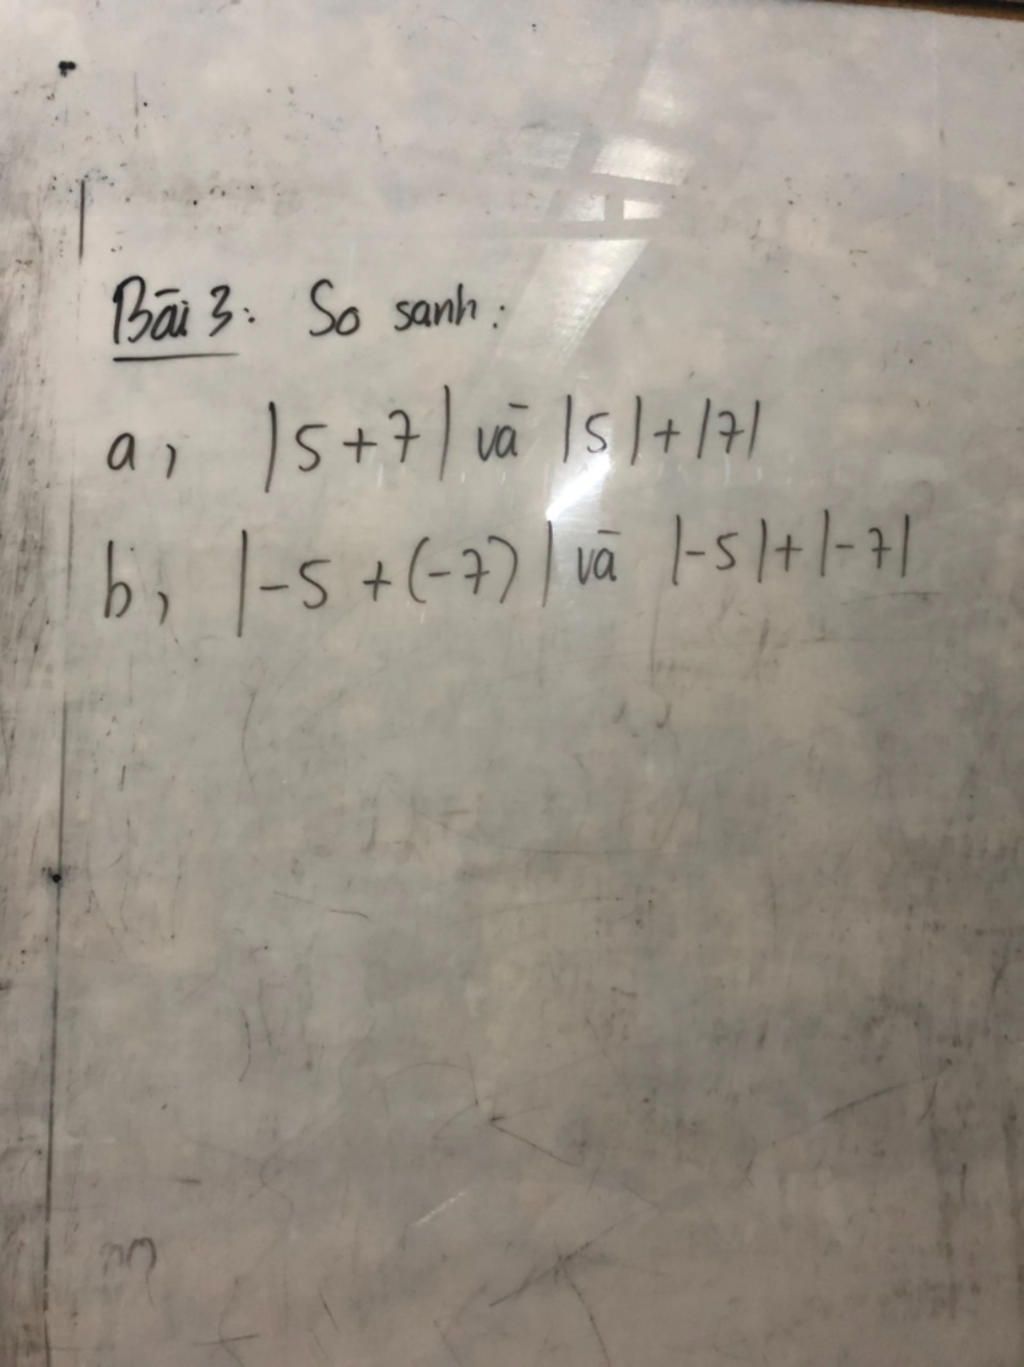 Bài 3: So sanh:
a, |5+7| và |5|+|7|
b, |-5+(-7)| và |-5|+|-7|